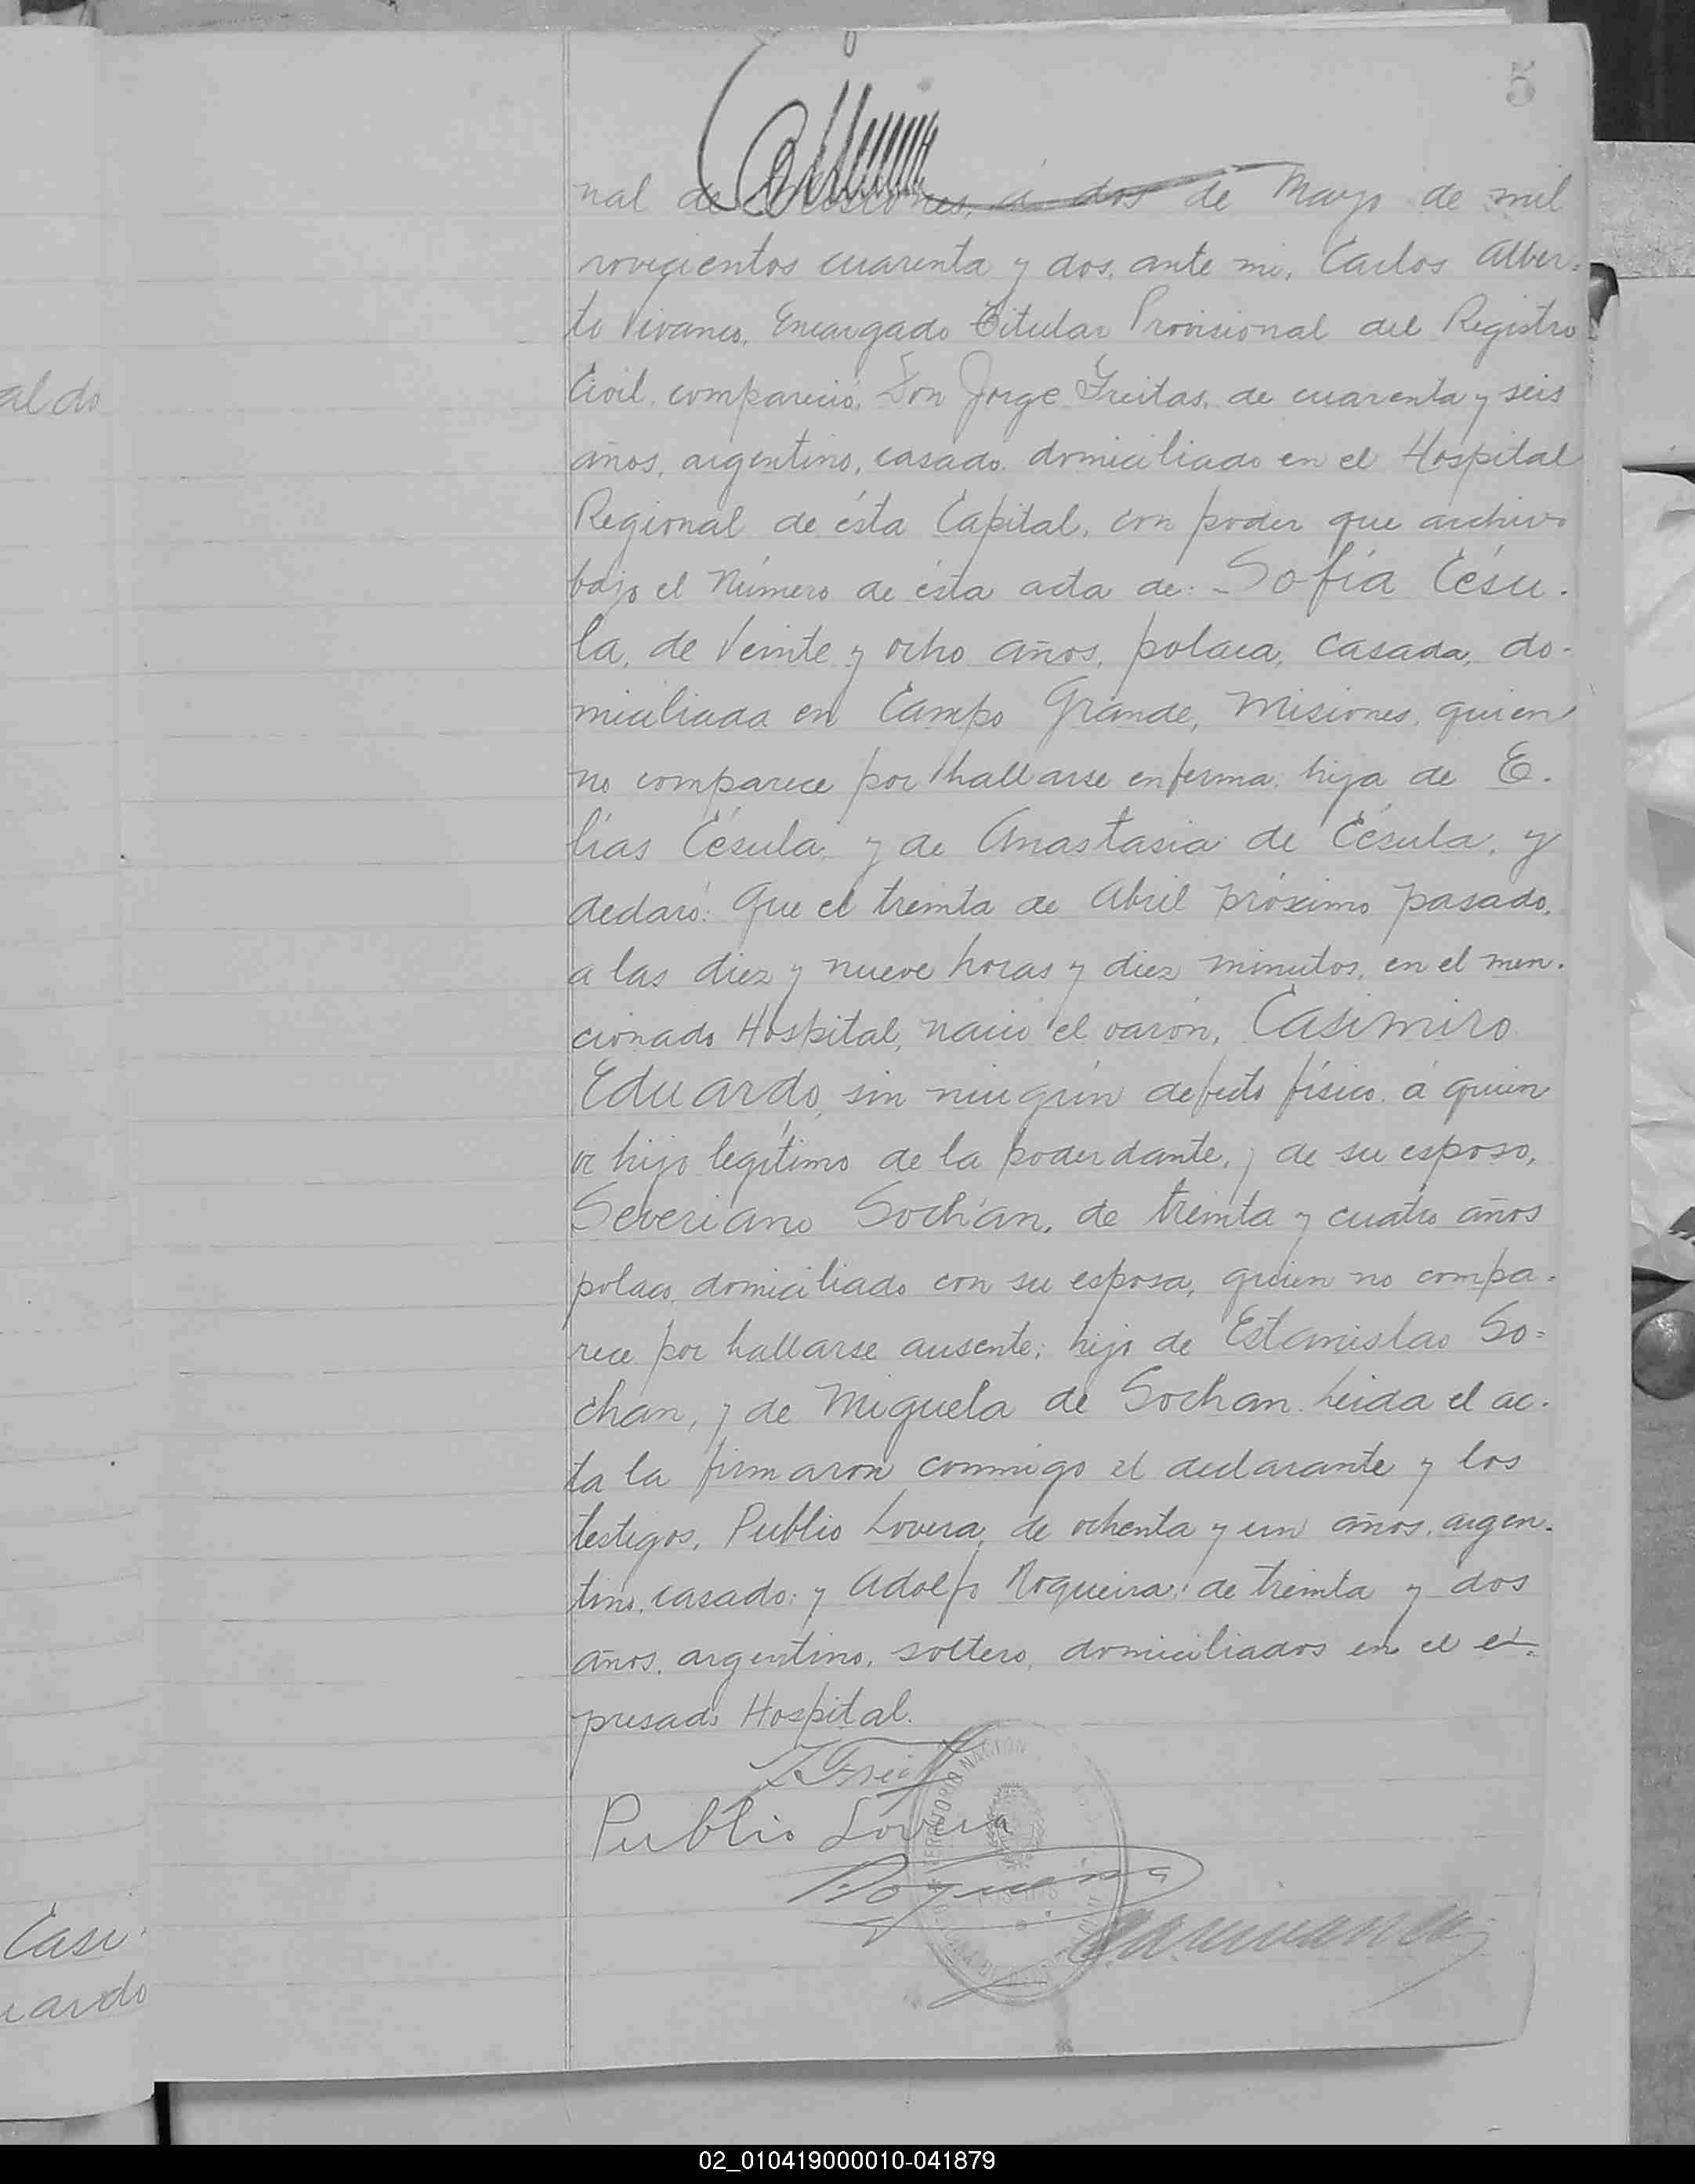 5
nal de Misiones, á dos de Mayo de mil
novecientos cuarenta y dos, ante mi, Carlos Alber=
to Vivanco, Encargado Titular Provisional del Registro
Civil, compareció, Don Jorge Freitas, de cuarenta y seis
años, argentino, casado, domiciliado en el Hospital
Regional de ésta Capital, con poder que archivo
bajo el Número de ésta acta de: - Sofía Césu-
la, de Veinte y ocho años, polaca, casada, do-
miciliada en Campo Grande, Misiones, quien
no comparece por hallarse enferma, hija de E-
lías Césula, y de Anastasia de Césula, y
declaró: Que el treinta de Abril próximo pasado,
a las diez y nueve horas y diez minutos, en el men-
cionado Hospital, nació el varón, Casimiro
Eduardo, sin ningún defecto físico, á quien
ví hijo legítimo de la poderdante, y de su esposo,
Severiano Sochán, de treinta y cuatro años
polaco, domiciliado con su esposa, quien no compa-
rece por hallarse ausente; hijo de Estanislao So=
chan, y de Miguela de Sochan. Leida el ac-
ta la firmaron conmigo el declarante y los
testigos, Publio Lovera, de ochenta y un años, argen-
tino, casado; y Adolfo Noqueira, de treinta y dos
años, argentino, soltero, domiciliados en el ex-
presado Hospital.
Publio Lovera
aldo
Casi-
uardo
02_010419000010-041879